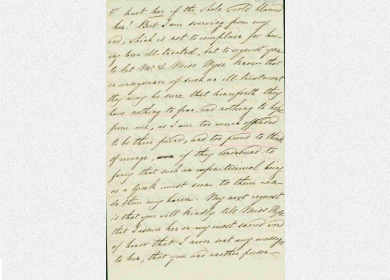 & hurt her if the whole World blamed
her! But I am swerving from my
end, which is not to complain for hav
ing been ill-treated, but to request you
to let Mr. & Miss know that
in consequence of such an ill-treatment
they may be sure that henceforth they
have nothing to fear and nothing to hope
from me, as I am too much offended
to be their friend, and too proud to think
of revenge, if they condescend to
fancy that such an infinitesimal being
as a Greek must seem to them can
do them any harm. My next request
is that you will kindly tell Miss
that I assure her on my most sacred word
of honor that I never sent any message
to her, that you and another person